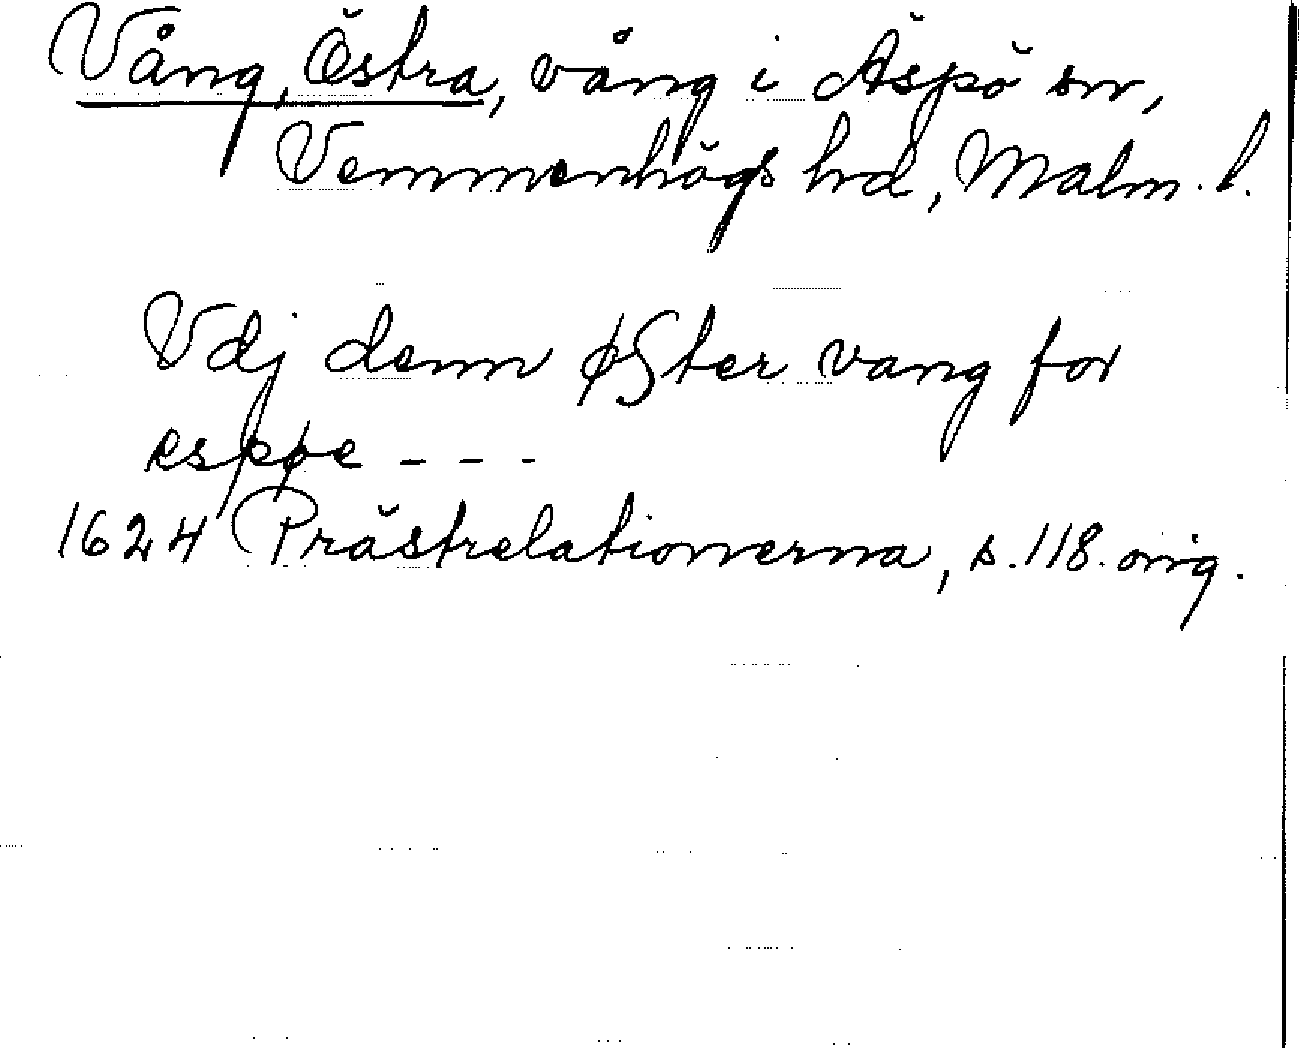 Vång, Östra, vång i Äspö sn,
Vemmenhögs hd, Malm. l.
Vdj denn øster vang for
espøe - - -
1624 Prästrelationerna, s. 118. orig.